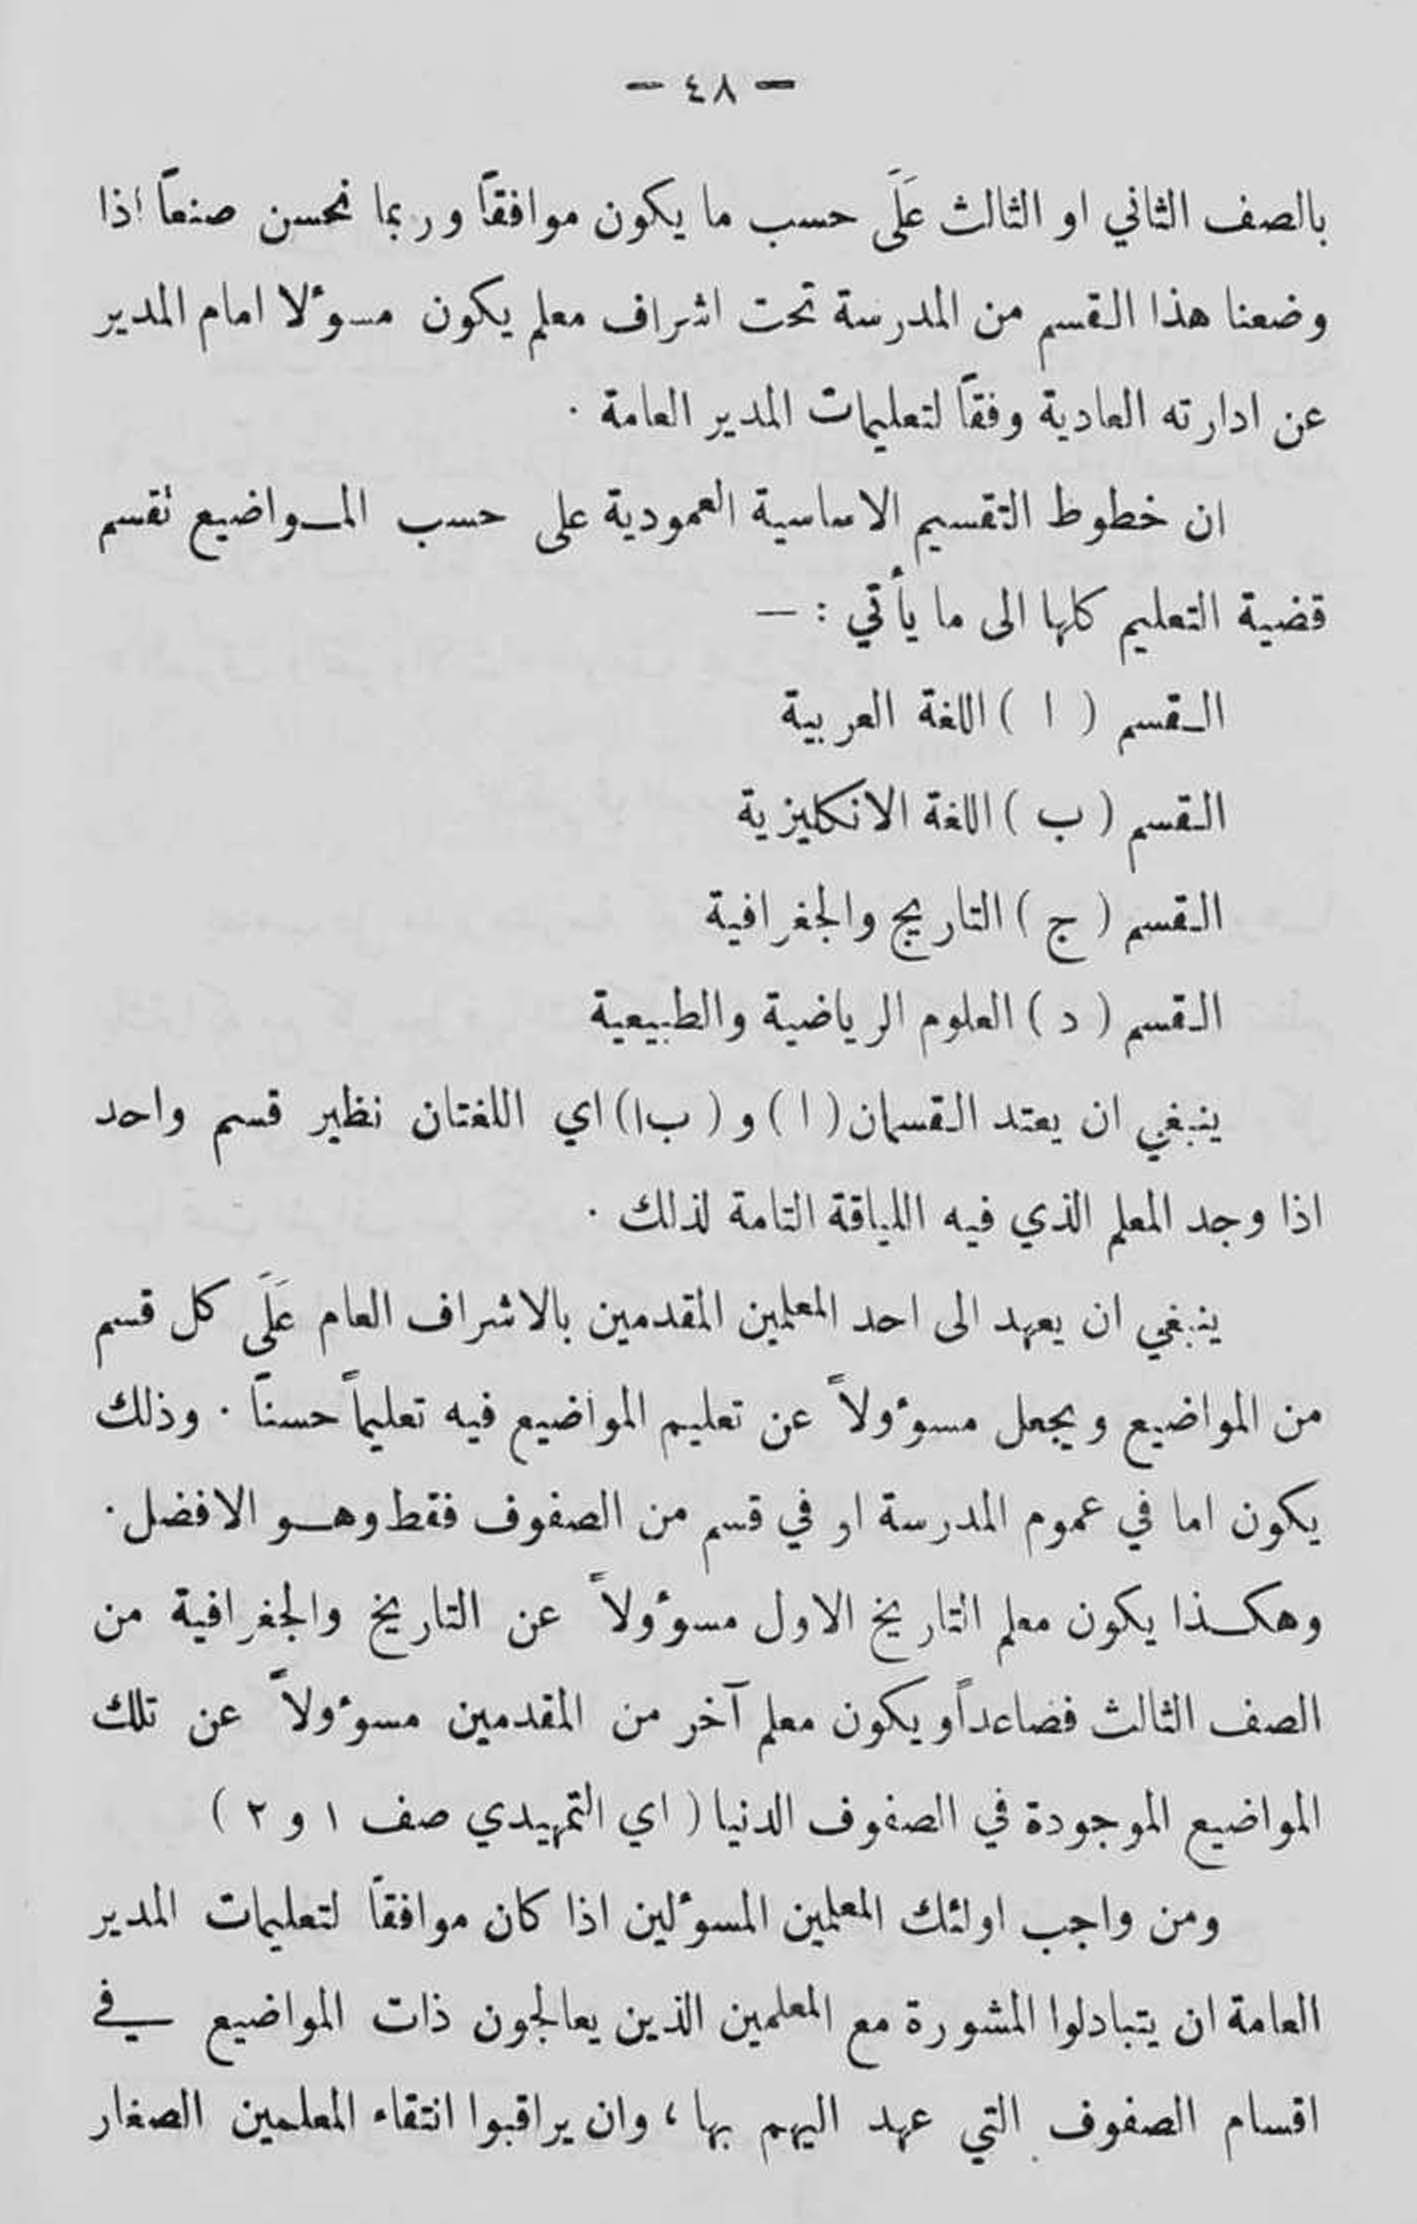 — ٤٨ —
بالصف الثاني او الثالث عَلَى حسب ما يكون موافقاً وربما نحسن صنعاً اذا
وضعنا هذا القسم من المدرسة تحت اشراف معلم يكون مسوٴلا امام المدير
عن ادارته العادية وفقاً لتعليمات المدير العامة ·
ان خطوط التقسيم الاساسية العمودية على حسب المواضيع تقسم
قضية التعليم كلها الى ما يأتي : —
القسم ( ا ) اللغة العربية
القسم ( ب ) اللغة الانكليزية
القسم ( ج ) التاريج والجغرافية
القسم ( د ) العلوم الرياضية والطبيعية
ينبغي ان يعتد القسمان ( ا ) و ( ب١) اي اللغتان نظير قسم واحد
اذا وجد المعلم الذي فيه اللياقة التامة لذلك ·
ينبغي ان يعهد الى احد المعلمين المقدمين بالاشراف العام عَلَى كل قسم
من المواضيع ويجعل مسوٴولاً عن تعليم المواضيع فيه تعليماً حسناً · وذلك
يكون اما في عموم المدرسة او في قسم من الصفوف فقط وهو الافضل ·
وهكذا يكون معلم التاريخ الاول مسوٴولاً عن التاريخ والجغرافية من
الصف الثالث فضاعداً ويكون معلم آخر من المقدمين مسوٴولاً عن تلك
المواضيع الموجودة في الصفوف الدنيا ( اي التمهيدي صف ١ و ٢ )
ومن واجب اولئك المعلمين المسوٴلين اذا كان موافقاً لتعليمات المدير
العامة ان يتبادلوا المشورة مع المعلمين الذين يعالجون ذات المواضيع في
اقسام الصفوف التي عهد اليهم بها ، وان يراقبوا انتقاء المعلمين الصغار